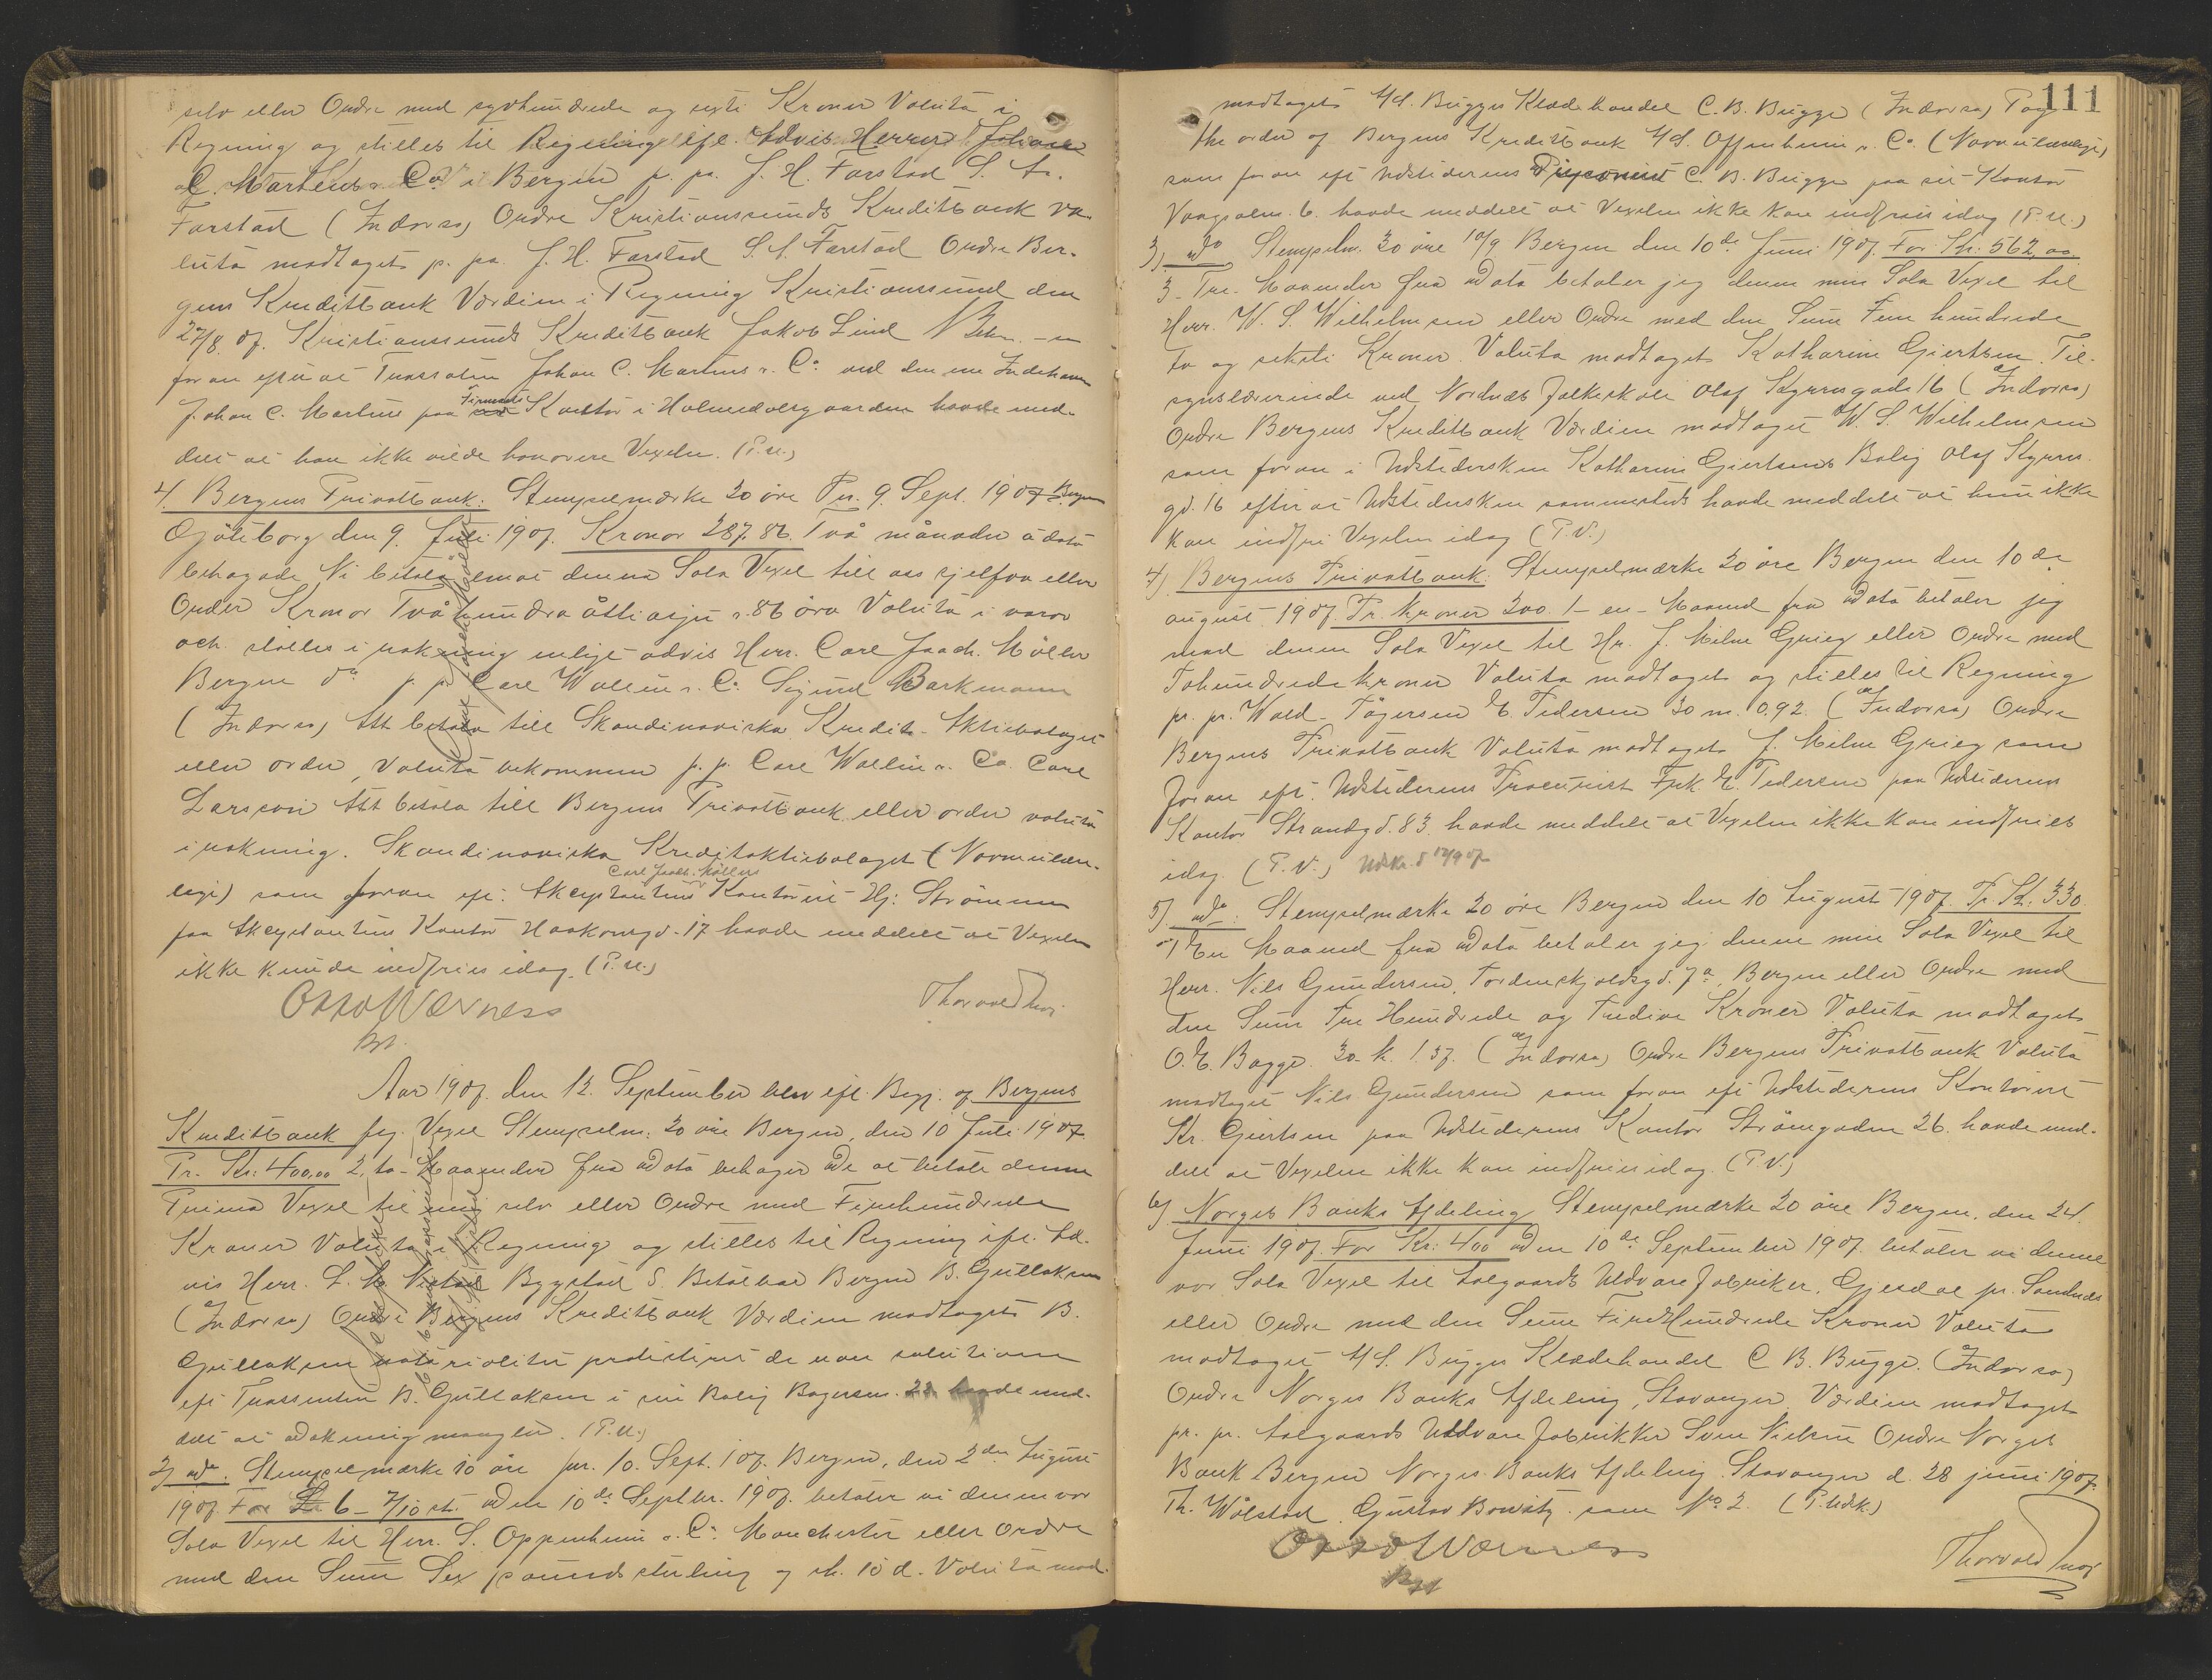 selv eller Ordre med syvhundrede og sexti Kroner Valuta i
Regning og stilles til Regning efl. Advis Herrer Johan
C. Martens & Co i Bergen p. pa. J. H. Farstad S. A.
Farstad (Indorso) Ordre Kristianssunds Kreditbank Va-
luta modtaget p. pa. J. H. Farstad S. A. Farstad Ordre Ber-
gens Kreditbank Værdien i Regning Kristianssund den
27/8. 07. Kristianssunds Kreditbank Jakob Lind
foran efter at Trassaten Johan C. Martens & Co ved den ene Indehaver
Johan C. Martens paa Firmaets Kontor i Holmedalsgaarden havde med-
delt at han ikke vilde honorere Vexelen. (P.u.)
4. Bergens Privatbank: Stempelmærke 20 øre Pr. 9. Sept. 1907 Bergen
Göteborg den 9. Juli 1907. Kronor 287.86. Två månader à dato
behagade Ni betala emot denna Sola Vexel till oss sjelfva eller
Order Kronor Två hundra åttiosju & 86 öre Valuta i varor
och ställes i räkning enligt advis Herr. Carl Joach. Möller
Bergen p. p. Carl Wallin & Co. Sigund Barkmann
(Indorso) Att betala till Skandinaviska Kredit-Aktiebolaget
eller order, Valuta bekommen p. p. Carl Wallin & Co. Carl
Larsson Att betala till Bergens Privatbank eller order valuta
i räkning. Skandinaviska Kreditaktiebolaget (Navn ulæse-
Carl Joach. Møllers
ligt) som foran eft. Akceptantens Kontorist Hj: Strømmen
paa Akceptantens Kontor Haakonsgd. 17 havde meddelt at Vexelen
ikke kunde indfries idag. (P.u.)
Otto Wærness
Bgt.
Thorvald Thor
Aar 1907. den 12. September blev efl. Begj. af Bergens
Kreditbank flg. Vexel Stempelm. 20 øre Bergen, den 10 Juli 1907
Pr. Kr: 400,00 2, to Maaneder fra dato behager De at betale denne
Prima Vexel til mig selv eller Ordre med Firehundrede
Kroner Valuta i Regning og stilles til Regning ifl. Ad-
vis Herr. L. M. Bygstad S. Betalbar Bergen B. Gullaksen
(Indorso) Ordre Bergens Kreditbank Værdien modtaget B.
Gullaksen notarialiter protesteret de non solutione
eft Trassenten B. Gullaksen i sin Bolig Bagersm. 22 havde med-
delt at dækning mangler. (P.u.)
2) do. Stempelmærke 10 øre pr. 10. Sept. 107. Bergen, den 2den August
1907. For £ 6-7/10 st. den 10de Septbr. 1907. betaler vi denne vor
Sola Vexel til Herr. S. Oppenheim & Co. Manchester eller Ordre
med den Sum Sex pounds sterling 7 sh. 10 d. Valuta mod-
111
modtaget A/S. Bugges Klædehandel C. B. Bugge (Indorso) Pay
the order of Bergens Kreditbank A/S. Oppenheim & Co. (Navn ulæseligt)
som foran eft Udstederens Disponent C. B. Bugge paa sit Kontor
Vaagsalm. 6. havde meddelt at Vexelen ikke kan indfries idag (P.u.)
3) do Stempelm. 30 øre 10/9 Bergen den 10de Juni 1907. For Kr. 562,00.
3 - Tre - Maaneder fra Dato betaler jeg denne min Sola Vexel til
Herr. W. S. Wilhelmsen eller Ordre med den Sum Fem hundrede
to og seksti Kroner. Valuta modtaget Katharine Giertsen. Til-
synslærerinde ved Nordnæs folkeskole Olaf Kyrresgade 16 (Indorso)
Ordre Bergens Kreditbank Værdien modtaget W. S. Wilhelmsen
som foran i Udstedersken Katharine Giertsens Bolig Olaf Kyrres
gd. 16 efter at Udstedersken sammesteds havde meddelt at hun ikke
kan indfri Vexelen idag (P.V.)
4) Bergens Privatbank: Stempelmærke 20 øre Bergen den 10 de
august 1907. Pr. kroner 200. 1 - en - Maaned fra Dato betaler jeg
mod denne Sola Vexel til Hr. J. Milne Grieg eller Ordre med
Tohundrede kroner Valuta modtaget og stilles til Regning
pr. pr. Wald. Tøgersen E. Pedersen 30 m. 0,92. (Indorso) Ordre
Bergens Privatbank Valuta modtaget J. Milne Grieg som
foran eft. Udstederens Procurist Frk E. Pedersen paa Udstederens
Kontor Strandgd. 83. havde meddelt at Vexelen ikke kan indfries
idag. (P.V.) Udsk. d 12/9 07
5) do: Stempelmærke 20 øre Bergen den 10 August 1907. Pr Kr. 330.
1 En Maaned fra Dato betaler jeg denne min Sola Vexel til
Herr. Nils Gundersen, Tordenskjoldsgd. 7a, Bergen eller Ordre med
den Sum Tre Hundrede og Tredive Kroner Valuta modtaget
O. E. Bagge. 30. k. 1.57. (Indorso) Ordre Bergens Privatbank Valuta
modtaget Nils Gundersen som foran eft Udstederens Kontorist
Kr. Giertsen paa Udstederens Kontor Strømgaden 26. havde med-
delt at Vexelen ikke kan indfries idag. (P.V.)
6) Norges Banks Afdeling Stempelmærke 20 øre Bergen, den 24.
Juni 1907. For Kr: 400 den 10de September 1907. betaler vi denne
vor Sola Vexel til Aalgaards Uldvarefabriker, Gjesdal pr. Sandnes
eller Ordre med den Sum Fire Hundrede Kroner Valuta
modtaget A/S. Bugges Klædehandel C. B. Bugge. (Indorso)
Ordre Norges Banks Afdeling, Stavanger. Værdien modtaget
pr. pr. Aalgaards Uldvarefabrikker Sven Nielsen Ordre Norges
Bank Bergen Norges Banks Afdeling Stavanger d. 28 juni 1907.
Th. Wølstad. Gustav Bowitz. som No. 2. (P.Udk.)
Otto Wærness
Bgt
Thorvald Thor